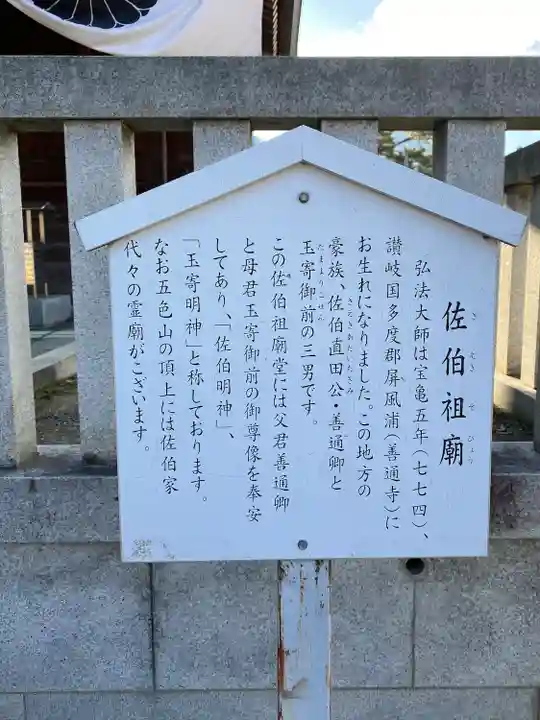 佐伯祖廟
さえきそびょう
弘法大師は宝亀五年(七七四)、
讃岐国多度郡屏風浦(善通寺)に
お生れになりました。この地方の
豪族、佐伯直田公・善通卿と
さえきあたいたきみ
玉寄御前の三男です。
たまよりごぜん
この佐伯祖廟堂には父君善通卿
と母君玉寄御前の御尊像を奉安
してあり、「佐伯明神」、
「玉寄明神」と称しております。
なお五色山の頂上には佐伯家
代々の霊廟がございます。